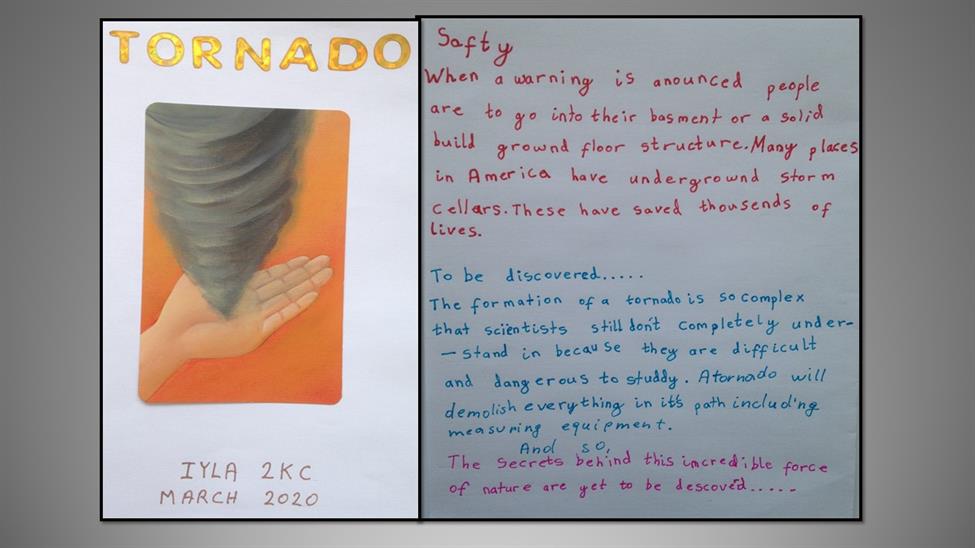 TORNADO
IYLA 2KC
MARCH 2020
Safty
When a warning is anounced people
are to go into their basment or a solid
build ground floor structure. Many places
in America have underground storm
cellars. These have saved thousends of
lives.
To be discovered.....
The formation of a tornado is so complex
that scientists still don't completely under-
- stand in because they are difficult
and dangerous to studdy. A tornado will
demolish everything in it's path including
measuring equipment.
And so,
The secrets behind this incredible force
of nature are yet to be descoved.....